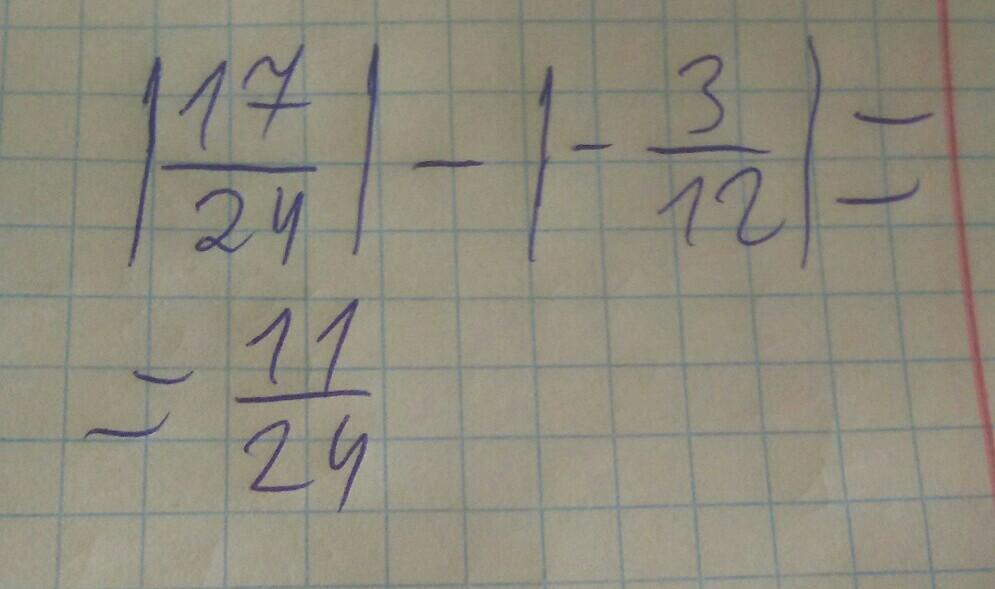 |17/24| - |-3/12| =
= 11/24